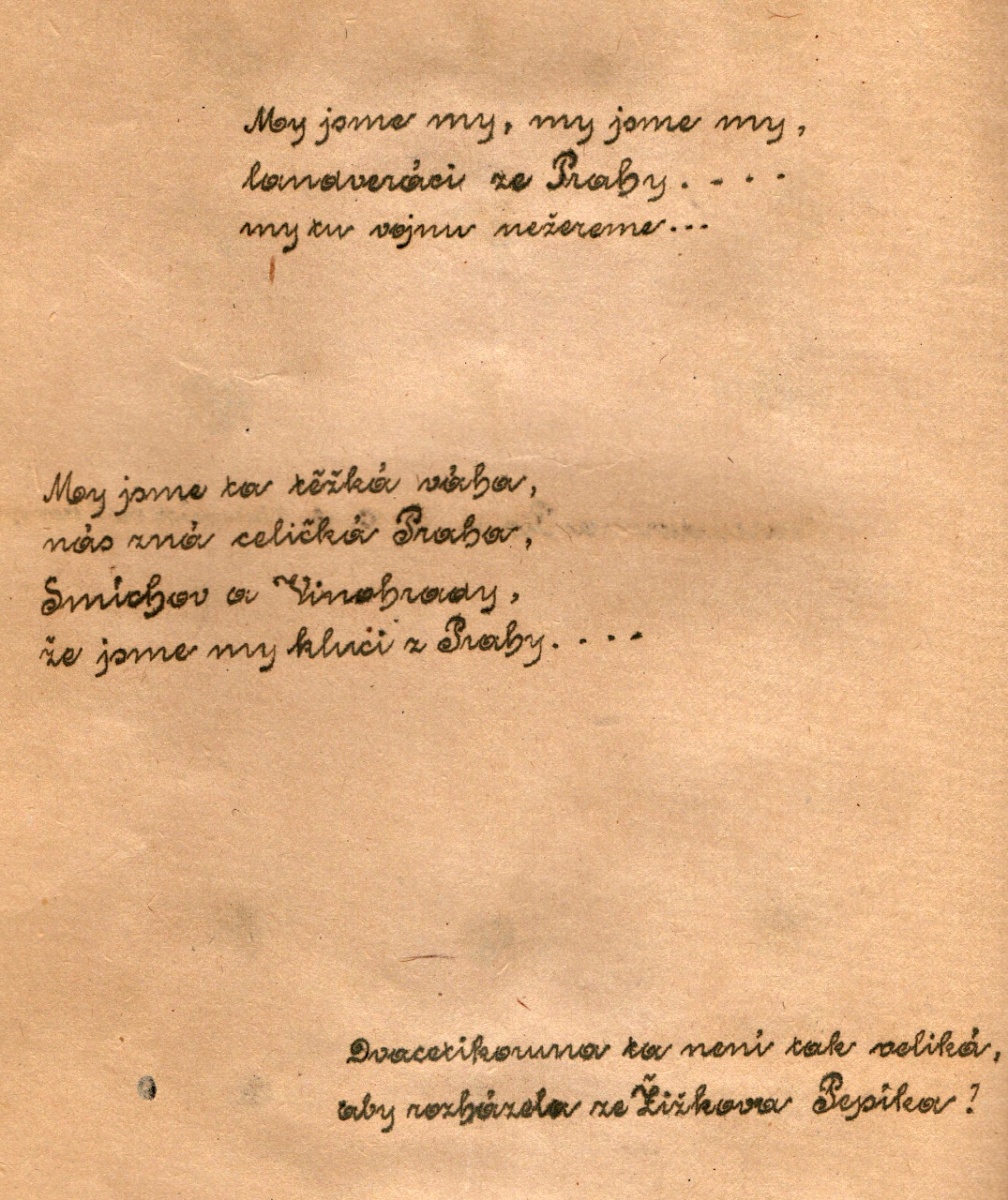 My jsme my, my jsme my,
landveráci ze Prahy. - . .
my tu vojnu nežereme...
My jsme ta těžká váha,
nás zná celičká Praha,
Smíchov a Vinohrady,
že jsme my kluci z Prahy. . . .
Dvacetikoruna ta není tak veliká,
aby rozházela ze Žižkova Pepíka?